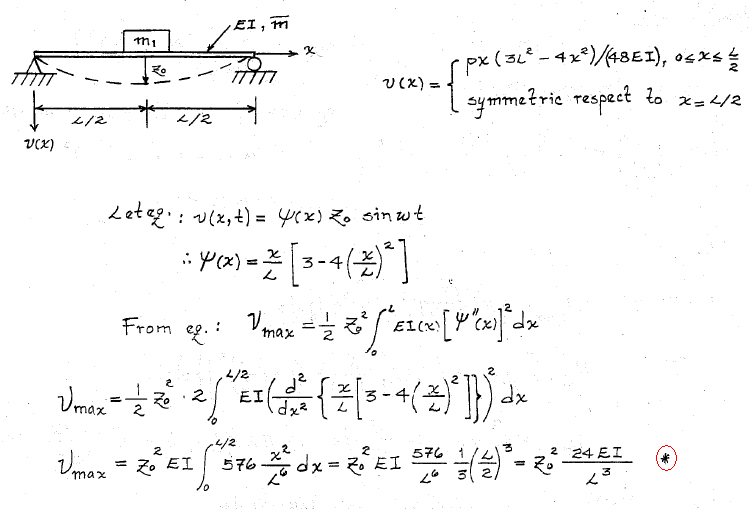 EI, m̅
m₁
x
z₀
L/2 L/2
v(x)
v(x) = { px(3L² - 4x²)/(48EI), 0≤x≤L/2
symmetric respect to x = L/2
Let eq.: v(x,t) = ψ(x) z₀ sin wt
∴ ψ(x) = x/L [3-4(x/L)²]
From eq.: Vmax = 1/2 z₀² ∫₀ᴸ EI(x)[ψ''(x)]² dx
Vmax = 1/2 z₀² · 2∫₀^(L/2) EI(d²/dx² {x/L [3-4(x/L)²]})² dx
Vmax = z₀² EI ∫₀^(L/2) 576 x²/L⁶ dx = z₀² EI 576/L⁶ 1/3 (L/2)³ = z₀² 24EI/L³ *